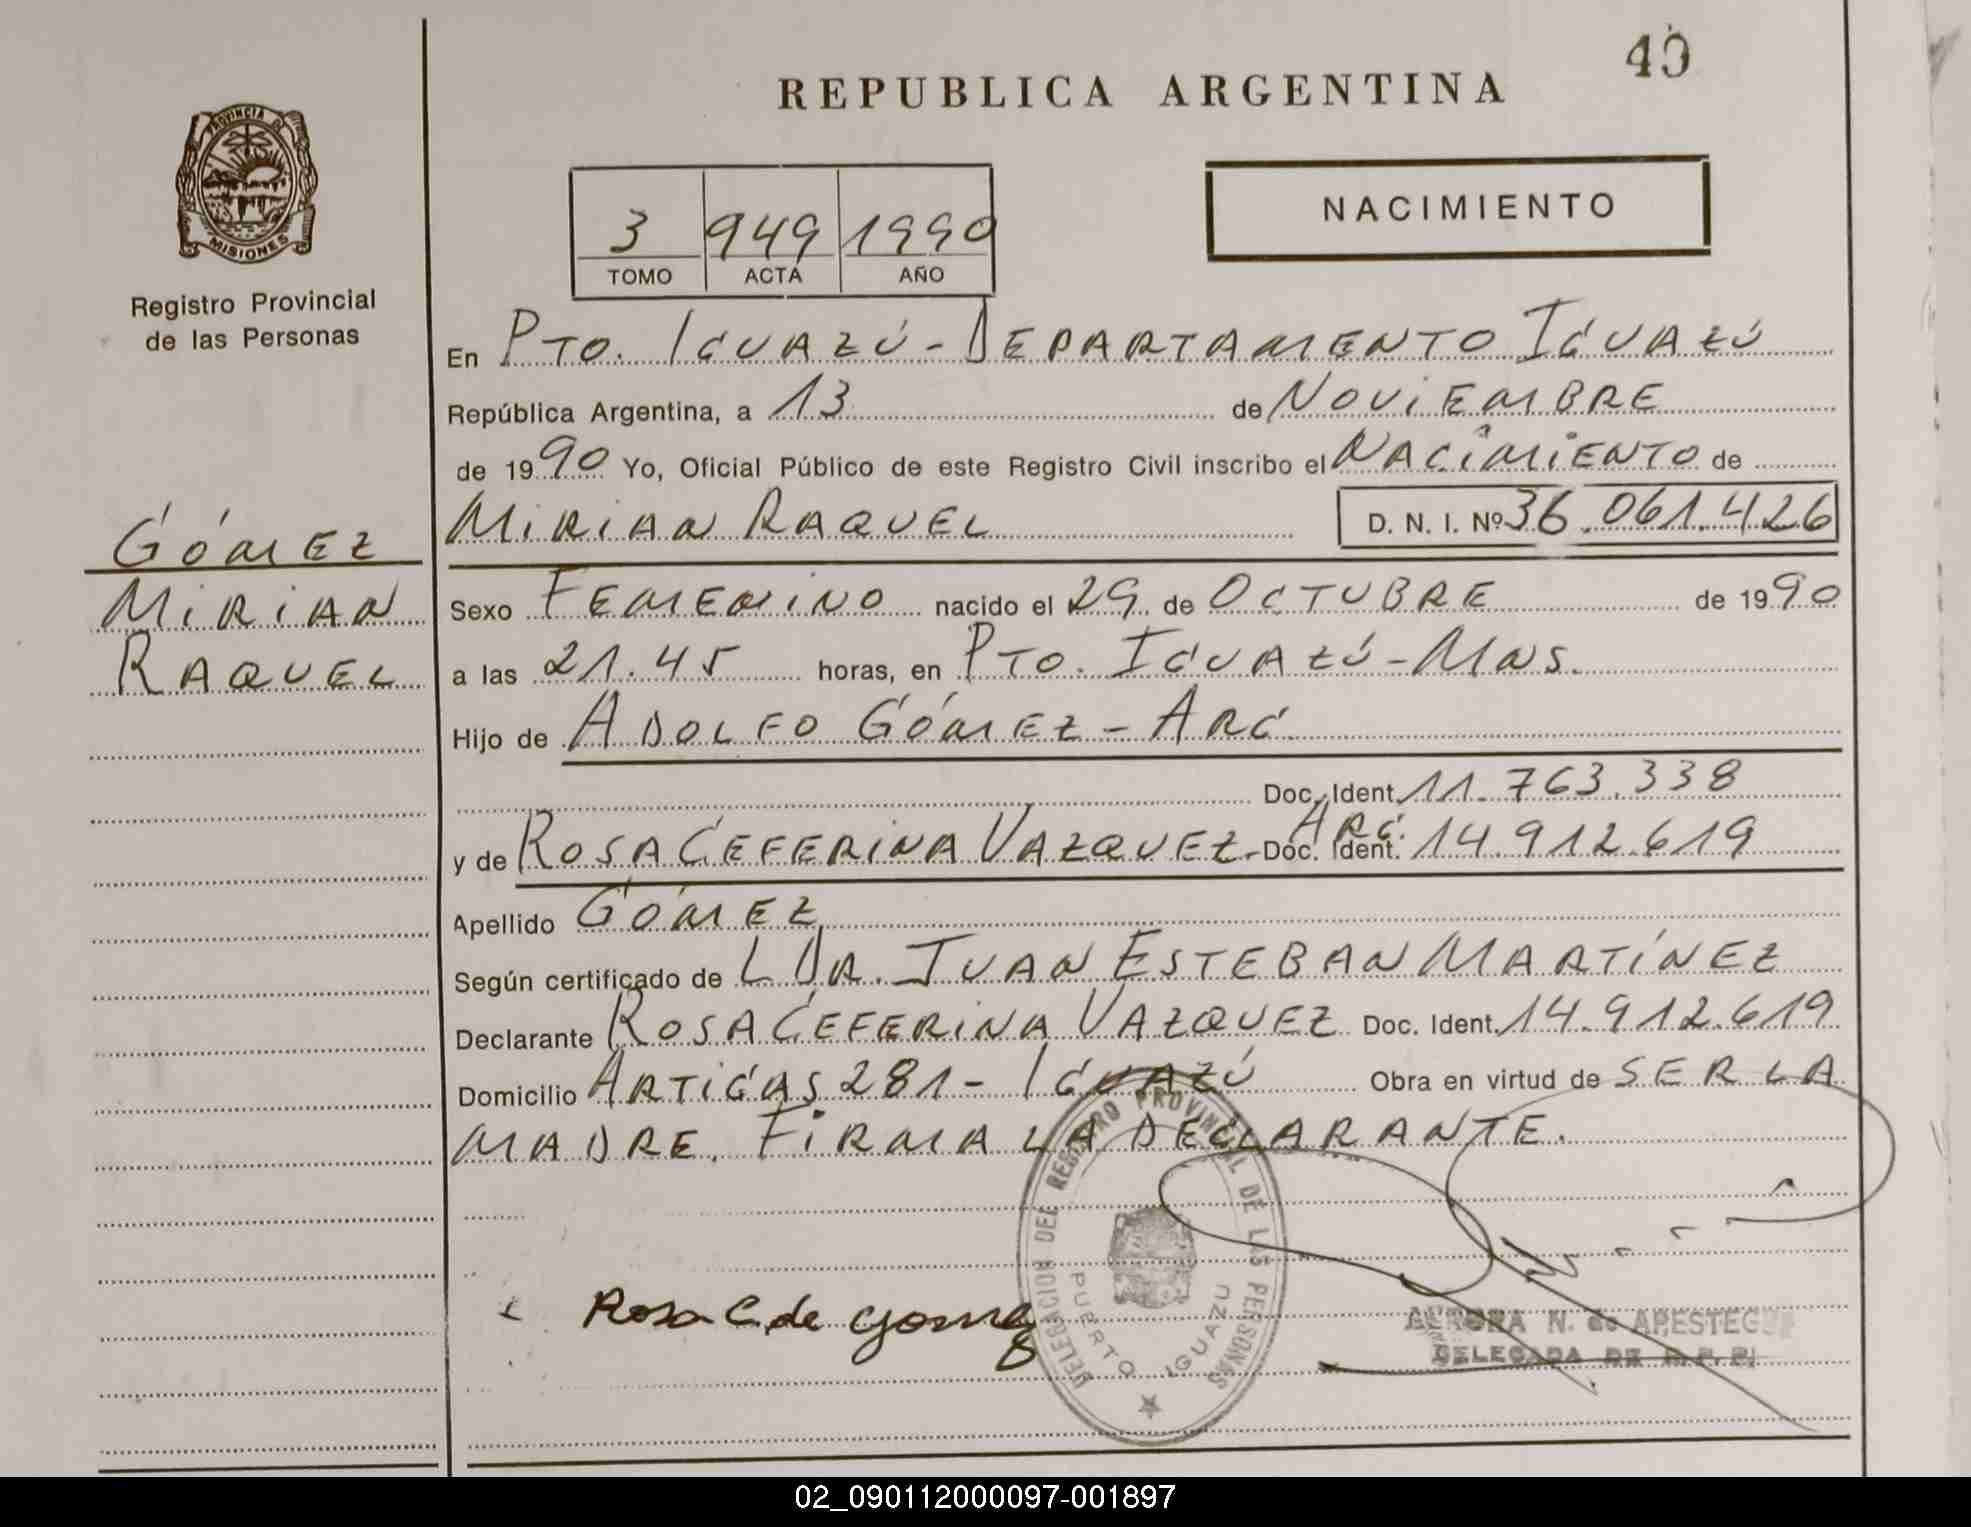 40
REPUBLICA ARGENTINA
PROVINCIA DE
MISIONES
Registro Provincial
de las Personas
NACIMIENTO
3 949 1990
TOMO ACTA AÑO
En PTO. IGUAZÚ - DEPARTAMENTO IGUAZÚ
República Argentina, a 13 de NOVIEMBRE
de 1990 Yo, Oficial Público de este Registro Civil inscribo el NACIMIENTO de
MIRIAN RAQUEL D. N. I. Nº 36.061.426
GÓMEZ
MIRIAN
RAQUEL
Sexo FEMENINO nacido el 29 de OCTUBRE de 1990
a las 21.45 horas, en PTO. IGUAZÚ - MNS.
Hijo de ADOLFO GÓMEZ - ARG.
Doc. Ident. 11.763.338
ARG.
y de ROSA CEFERINA VAZQUEZ - Doc. Ident. 14.912.619
Apellido GÓMEZ
Según certificado de L DR. JUAN ESTEBAN MARTÍNEZ
Declarante ROSA CEFERINA VAZQUEZ Doc. Ident. 14.912.619
Domicilio ARTIGAS 281 - IGUAZÚ Obra en virtud de SER LA
MADRE. FIRMA LA DECLARANTE.
DELEGACION DEL REGISTRO PROVINCIAL DE LAS PERSONAS
PUERTO IGUAZU
Rosa C. de Gomez
AURORA N. de APESTEGUI
DELEGADA DE R.P.P.
02_090112000097-001897